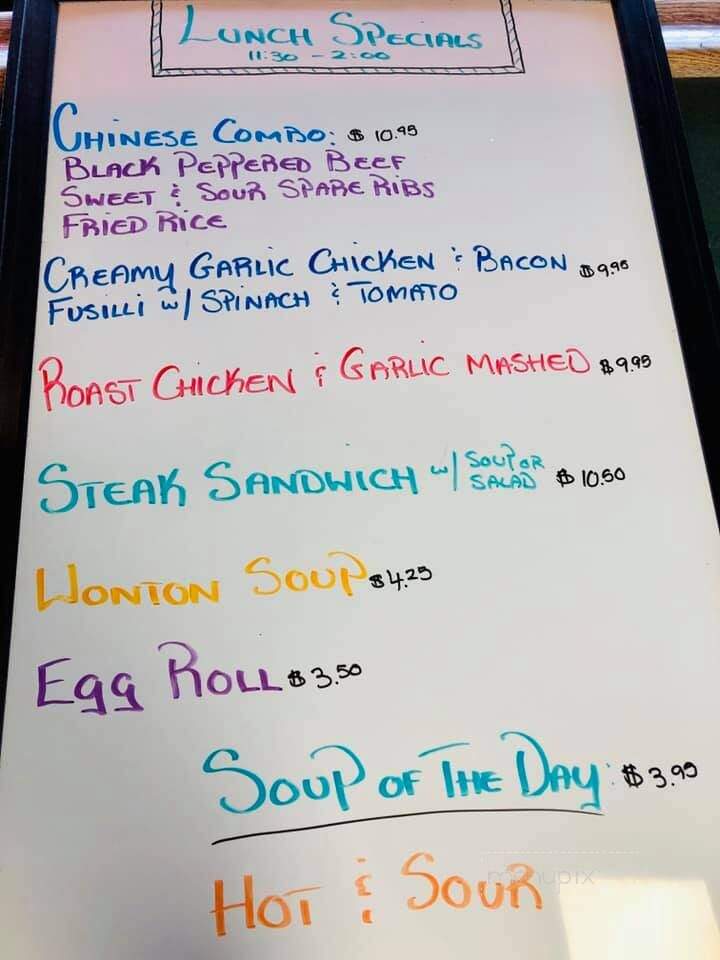 Lunch Specials
11:30 - 2:00
Chinese Combo: $10.95
Black Peppered Beef
Sweet & Sour Spare Ribs
Fried Rice
Creamy Garlic Chicken & Bacon $9.95
Fusilli w/ Spinach & Tomato
Roast Chicken & Garlic Mashed $9.95
Steak Sandwich w/ Soup or Salad $10.50
Wonton Soup $4.25
Egg Roll $3.50
Soup of the Day: $3.99
Hot & Sour
menupix